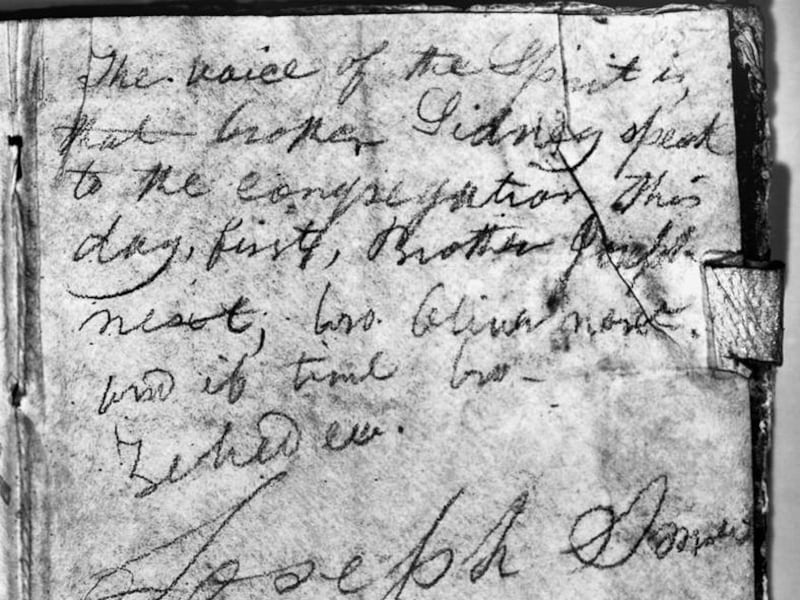 The voice of the Spirit is,
that brother Sidney speak
to the congregation this
day, first, Brother Joseph
next, bro. Oliver next.
and if time bro-
Zebedee.
Joseph Smith